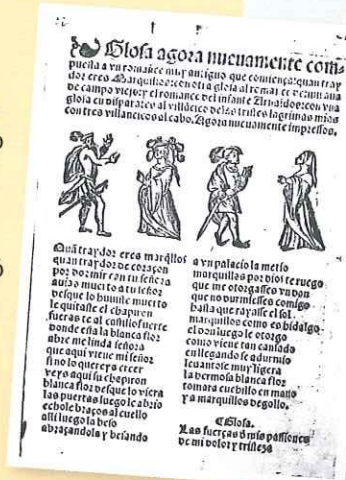 Glosa agora nueuamente com-
puesta a vn romance muy antiguo que comiença: quan tray
dor eres Marquillos: con otra glosa al romance
de campo viejo: y el romance del infante Arnaldos: con vna
glosa en disparates al villācico de las tristes lagrimas mias
con tres villancicos al cabo. Agora nueuamente impressos.
Quā traydor eres marqllos
quan traydor de coraçon
por dormir con tu señora
auias muerto a tu señor
desque lo huuiste muerto
le quitaste el chapiron
fueras te al castillo fuerte
donde esta la blanca flor
abre me linda señora
que aqui viene mi señor
si no lo quereys creer
veys aqui su chapiron
blanca flor desque lo viera
las puertas luego le abrio
echole braços al cuello
alli luego la beso
abraçandola y besando
a vn palacio la metio
marquillos por dios te ruego
que me otorgasses vn don
que no durmiesses comigo
hasta que rayasse el sol
marquillos como es hidalgo
el don luego le otorgo
como viene tan cansado
en llegando se adurmio
leuantose muy ligera
la hermosa blanca flor
tomara cuchillo en mano
y a marquillos degollo.
Glosa.
Las fuerças ō mis passiones
de mi dolor y tristeza